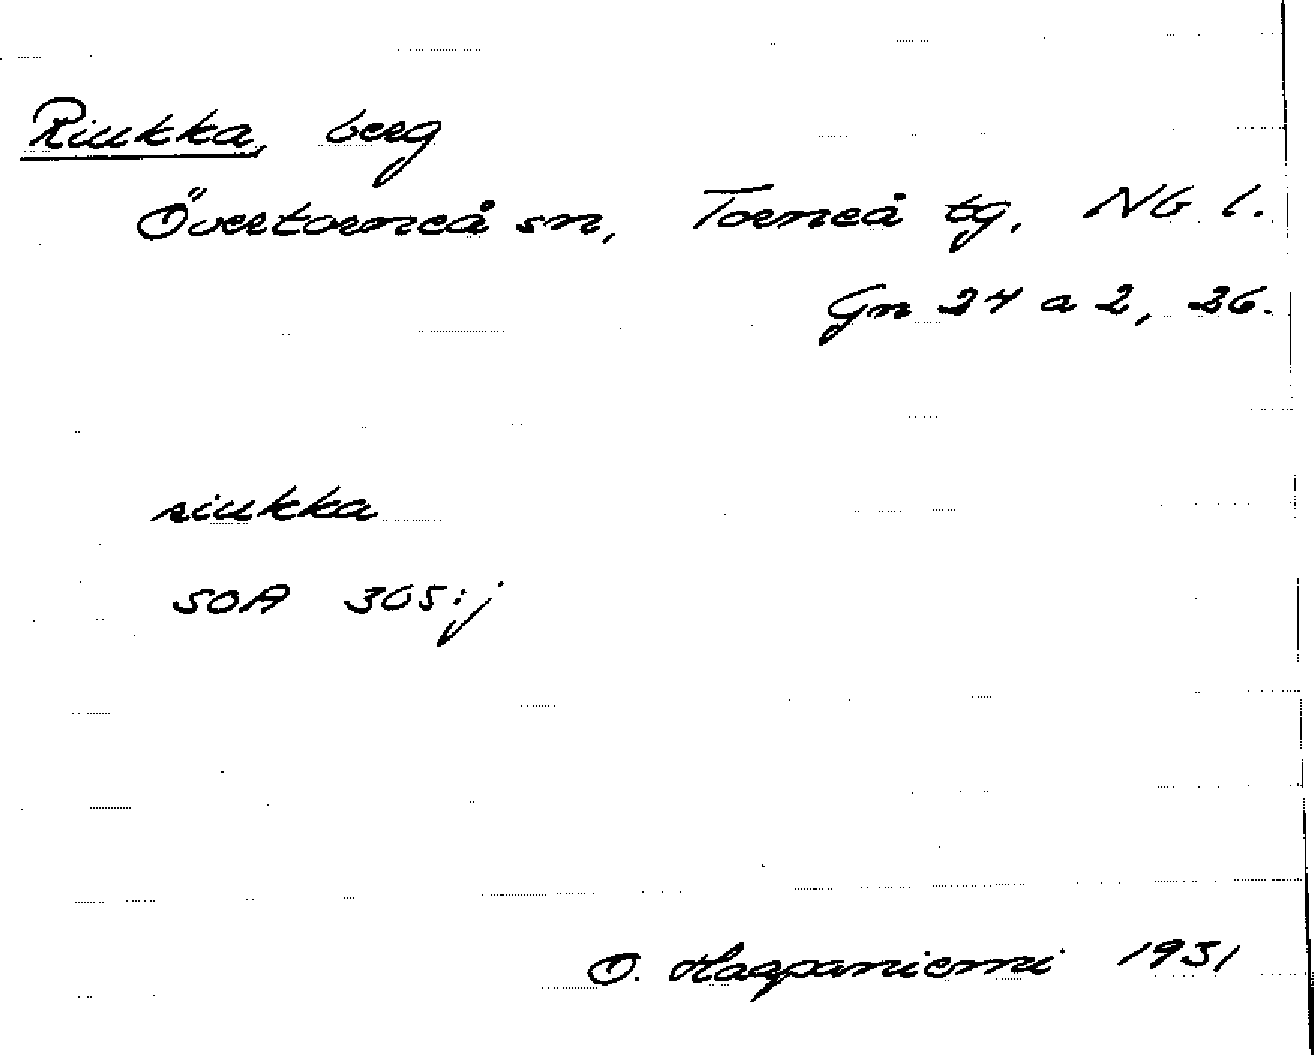 Riukka, berg
Övertorneå sn, Torneå tg, NB l.
Gn 24 a 2, 26.
riukka
SOA 305:j
O. Haapaniemi 1931